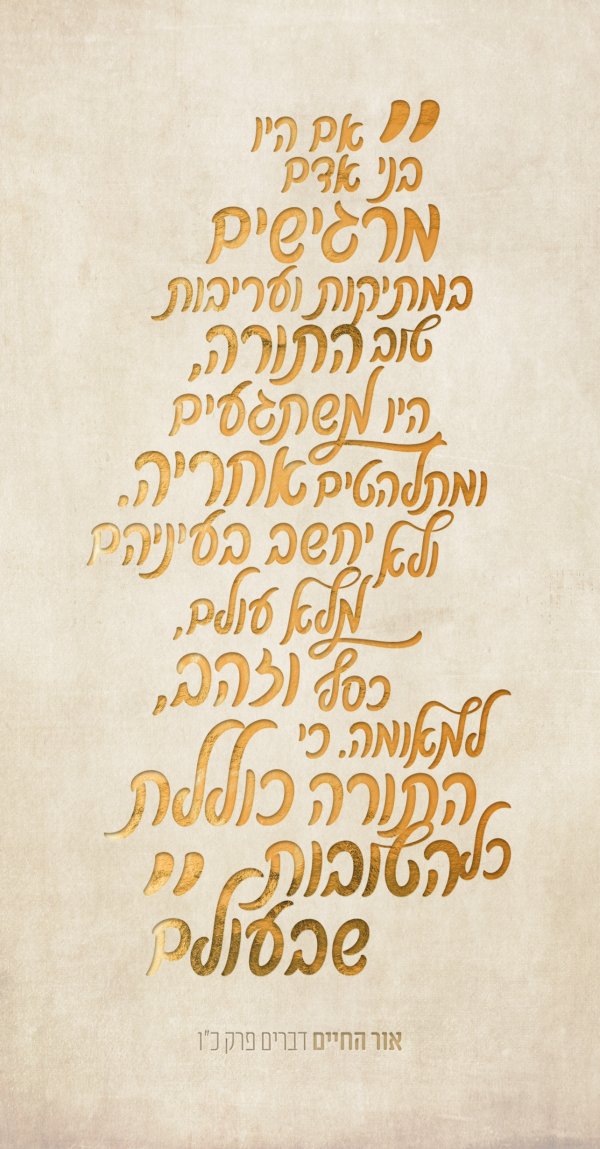 "אם היו
בני אדם
מרגישים
במתיקות ועריבות
טוב התורה,
היו משתגעים
ומתלהטים אחריה.
ולא יחשב בעיניהם
מלא עולם,
כסף וזהב,
למאומה. כי
התורה כוללת
כל הטובות
שבעולם"
אור החיים דברים פרק כ"ו